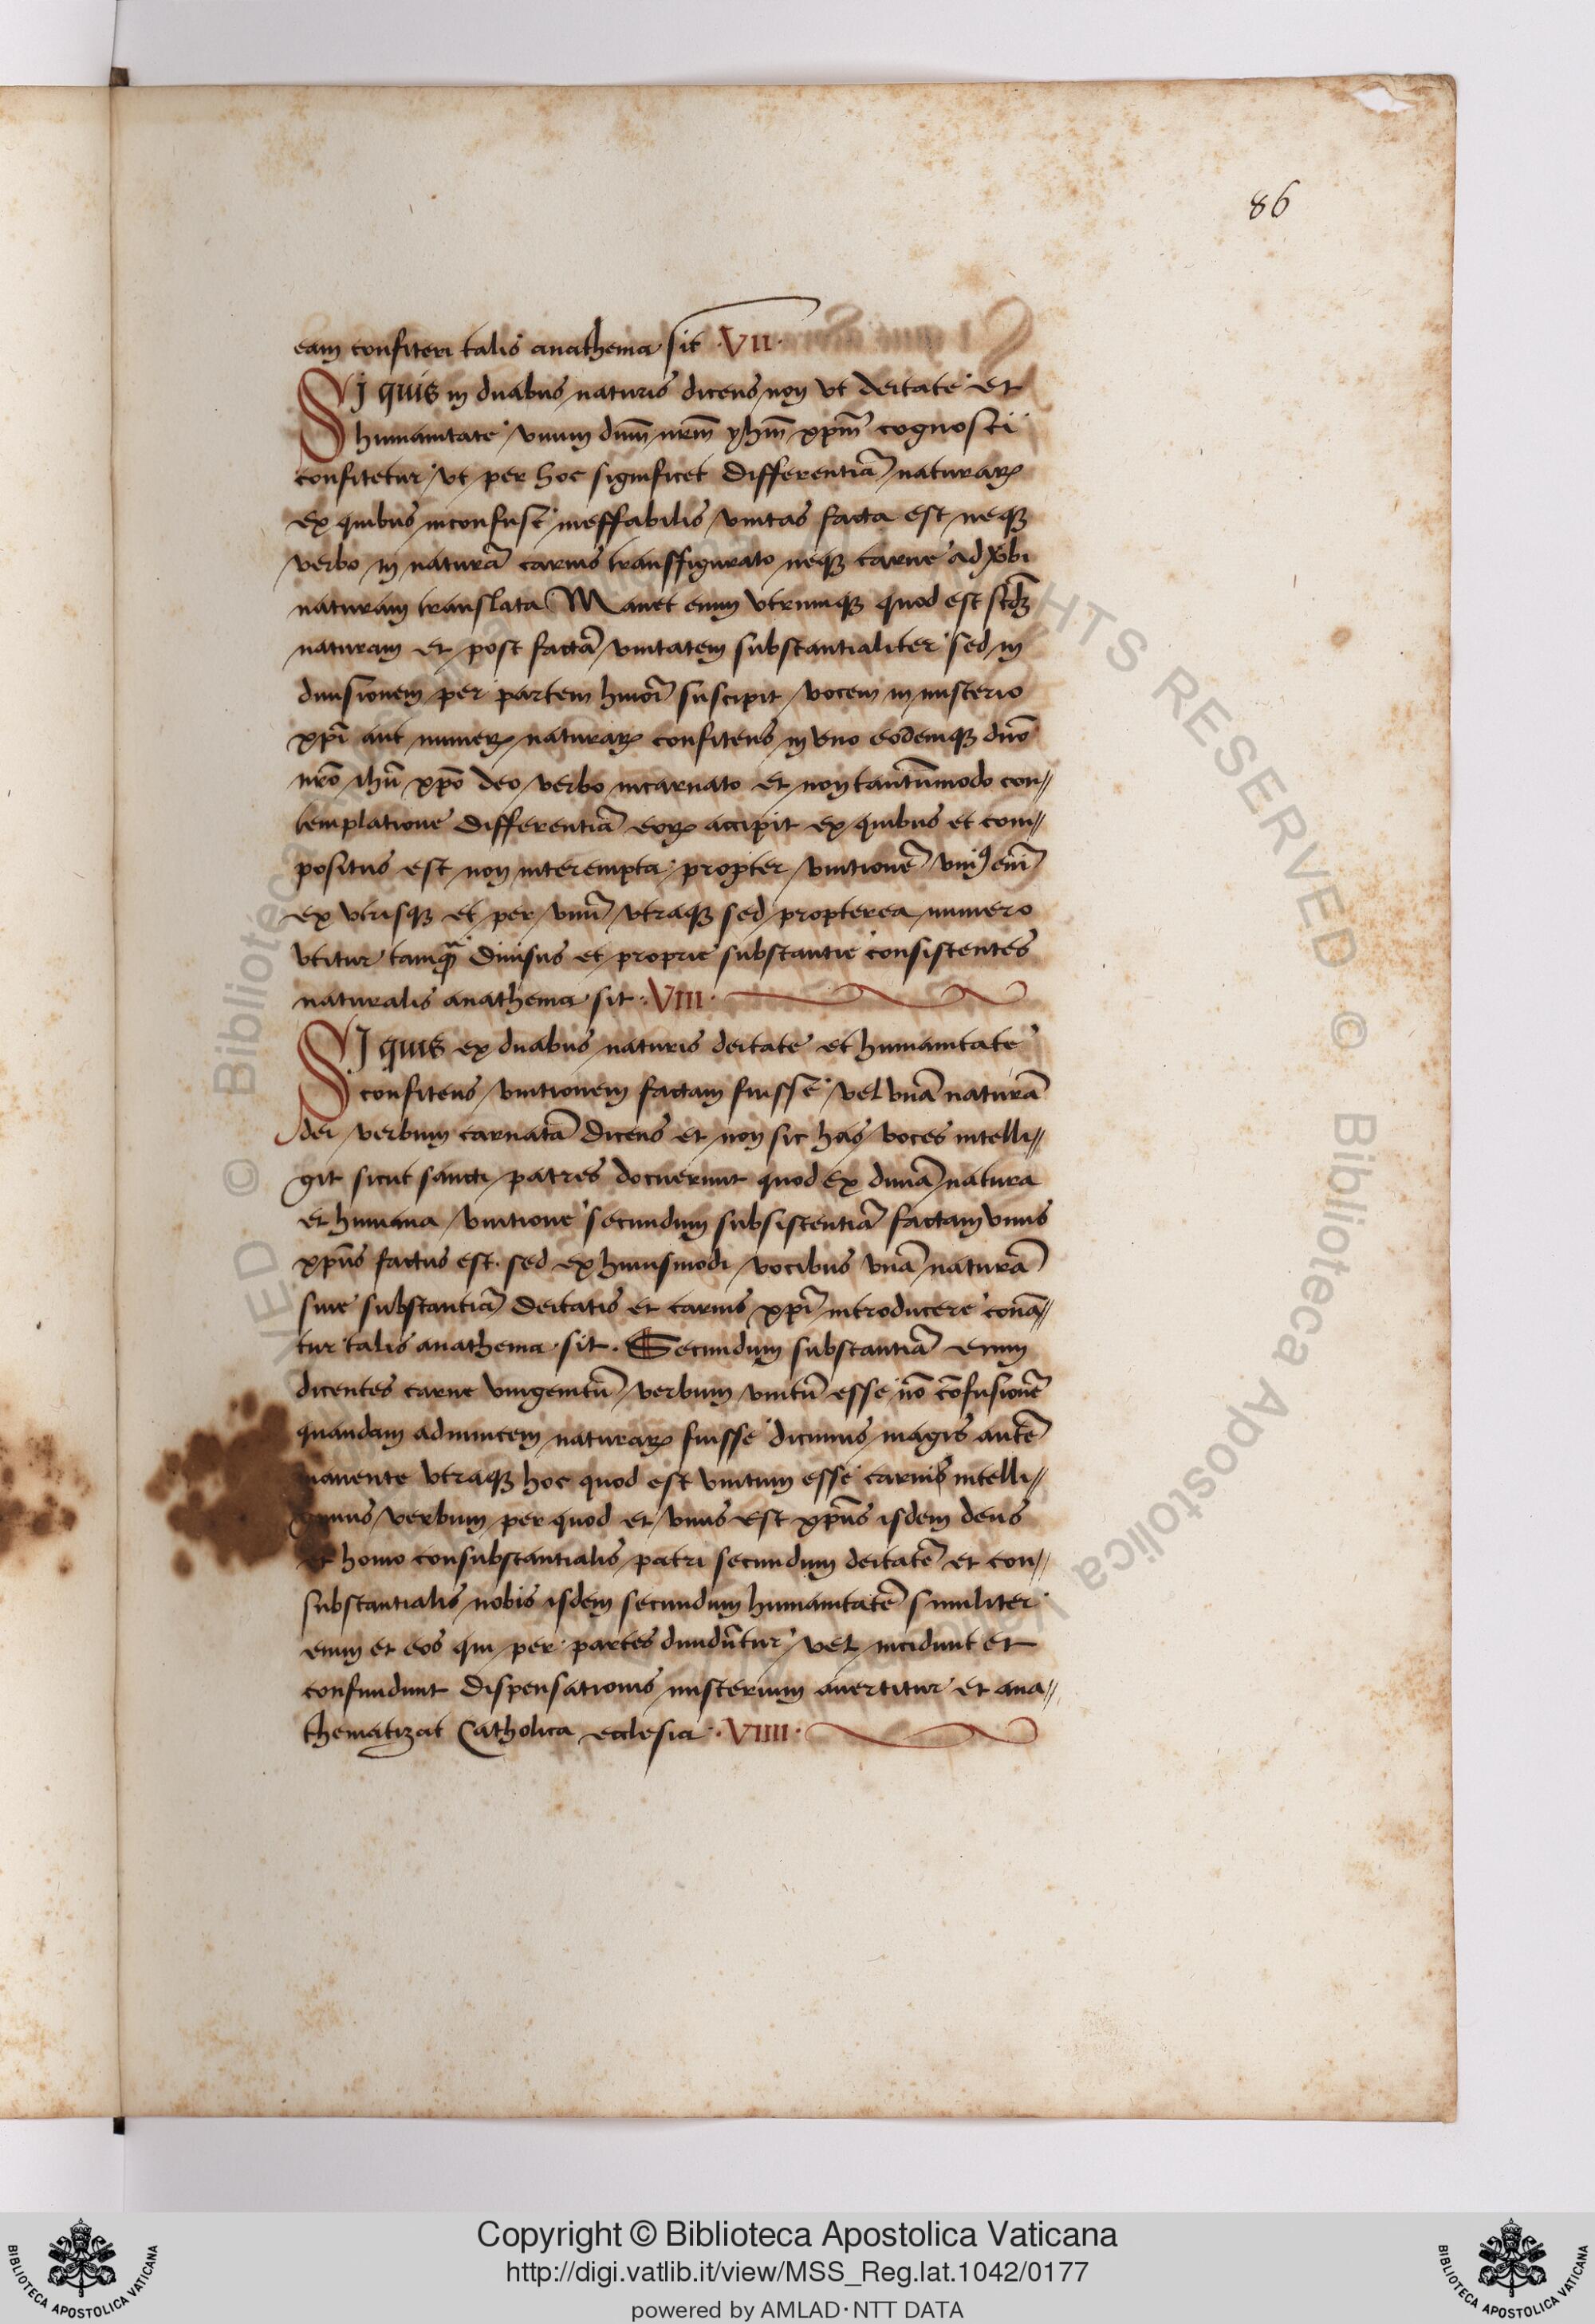 86
eam confiteri talis anathema sit ·VII·
Sj quis in duabus naturis dicens non vt deitate et
humanitate vnum dnm̄ nrm̄ yhm̄ xpm̄ cognosci
confitetur vt per hoc significet differentiā naturaꝝ
ex quibus inconfuse ineffabilis vnitas facta est neqꝫ
verbo in naturā carnis transfigurato neqꝫ carne ad vbi
naturam translata Manet enim vtrumqꝫ quod est scdꝫ
naturam et post factā vnitatem substantialiter sed in
diuisionem per partem hmōi suscipit vocem in misterio
xpī aut numerꝝ naturaꝝ confitens in vno eodemqꝫ dnō
nrō ihū xpō deo verbo incarnato et non tantūmodo con//
templatione differentiā eoꝝ accipit ex quibus et com//
positus est non interempta propter vnitionē vniꝰ enī
ex vtrisqꝫ et per vnū vtraqꝫ sed propterea numero
vtitur tamquā diuisus et proprie substantie consistentes
naturalis anathema sit ·VIII·
Sj quis ex duabus naturis deitate et humanitate
confitens vnitionem factam fuisse vel vnā naturā
dei verbum carnatā dicens et non sic has voces intelli//
git sicut sancti patres docuerunt quod ex diuinā natura
et humana vnitione secundum subsistentiā factam vnus
xpūs factus est. sed ex huiusmodi vocibus vnā naturā
siue substantiā deitatis et carnis xpī introducere conā//
tur talis anathema sit. Secundum substantiā enim
dicentes carne vnigenitū verbum vnitū esse nō cōfusionē
quandam adinuicem naturaꝝ fuisse dicimus magis autē
manente vtraqꝫ hoc quod est vnitum esse carnis intelli//
gimus verbum per quod et vnus est xpūs isdem deus
et homo consubstantialis patri secundum deitatē et con//
substantialis nobis isdem secundum humanitatē similiter
enim et eos qui per partes diuidūtur vel incidunt et
confundunt dispensationis misterium auertitur et ana//
thematizat Catholica ecclesia ·VIIII·
© Biblioteca Apostolica
RIGHTS RESERVED © Biblioteca Apostolica
Copyright © Biblioteca Apostolica Vaticana
http://digi.vatlib.it/view/MSS_Reg.lat.1042/0177
powered by AMLAD·NTT DATA
BIBLIOTECA APOSTOLICA VATICANA
BIBLIOTECA APOSTOLICA VATICANA